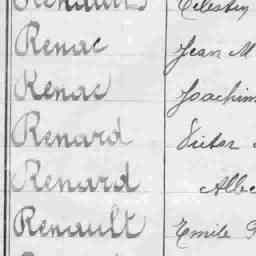 Renault Celestin
Renac Jean M
Renac Joachim
Renard Victor
Renard Albe
Renault Emile